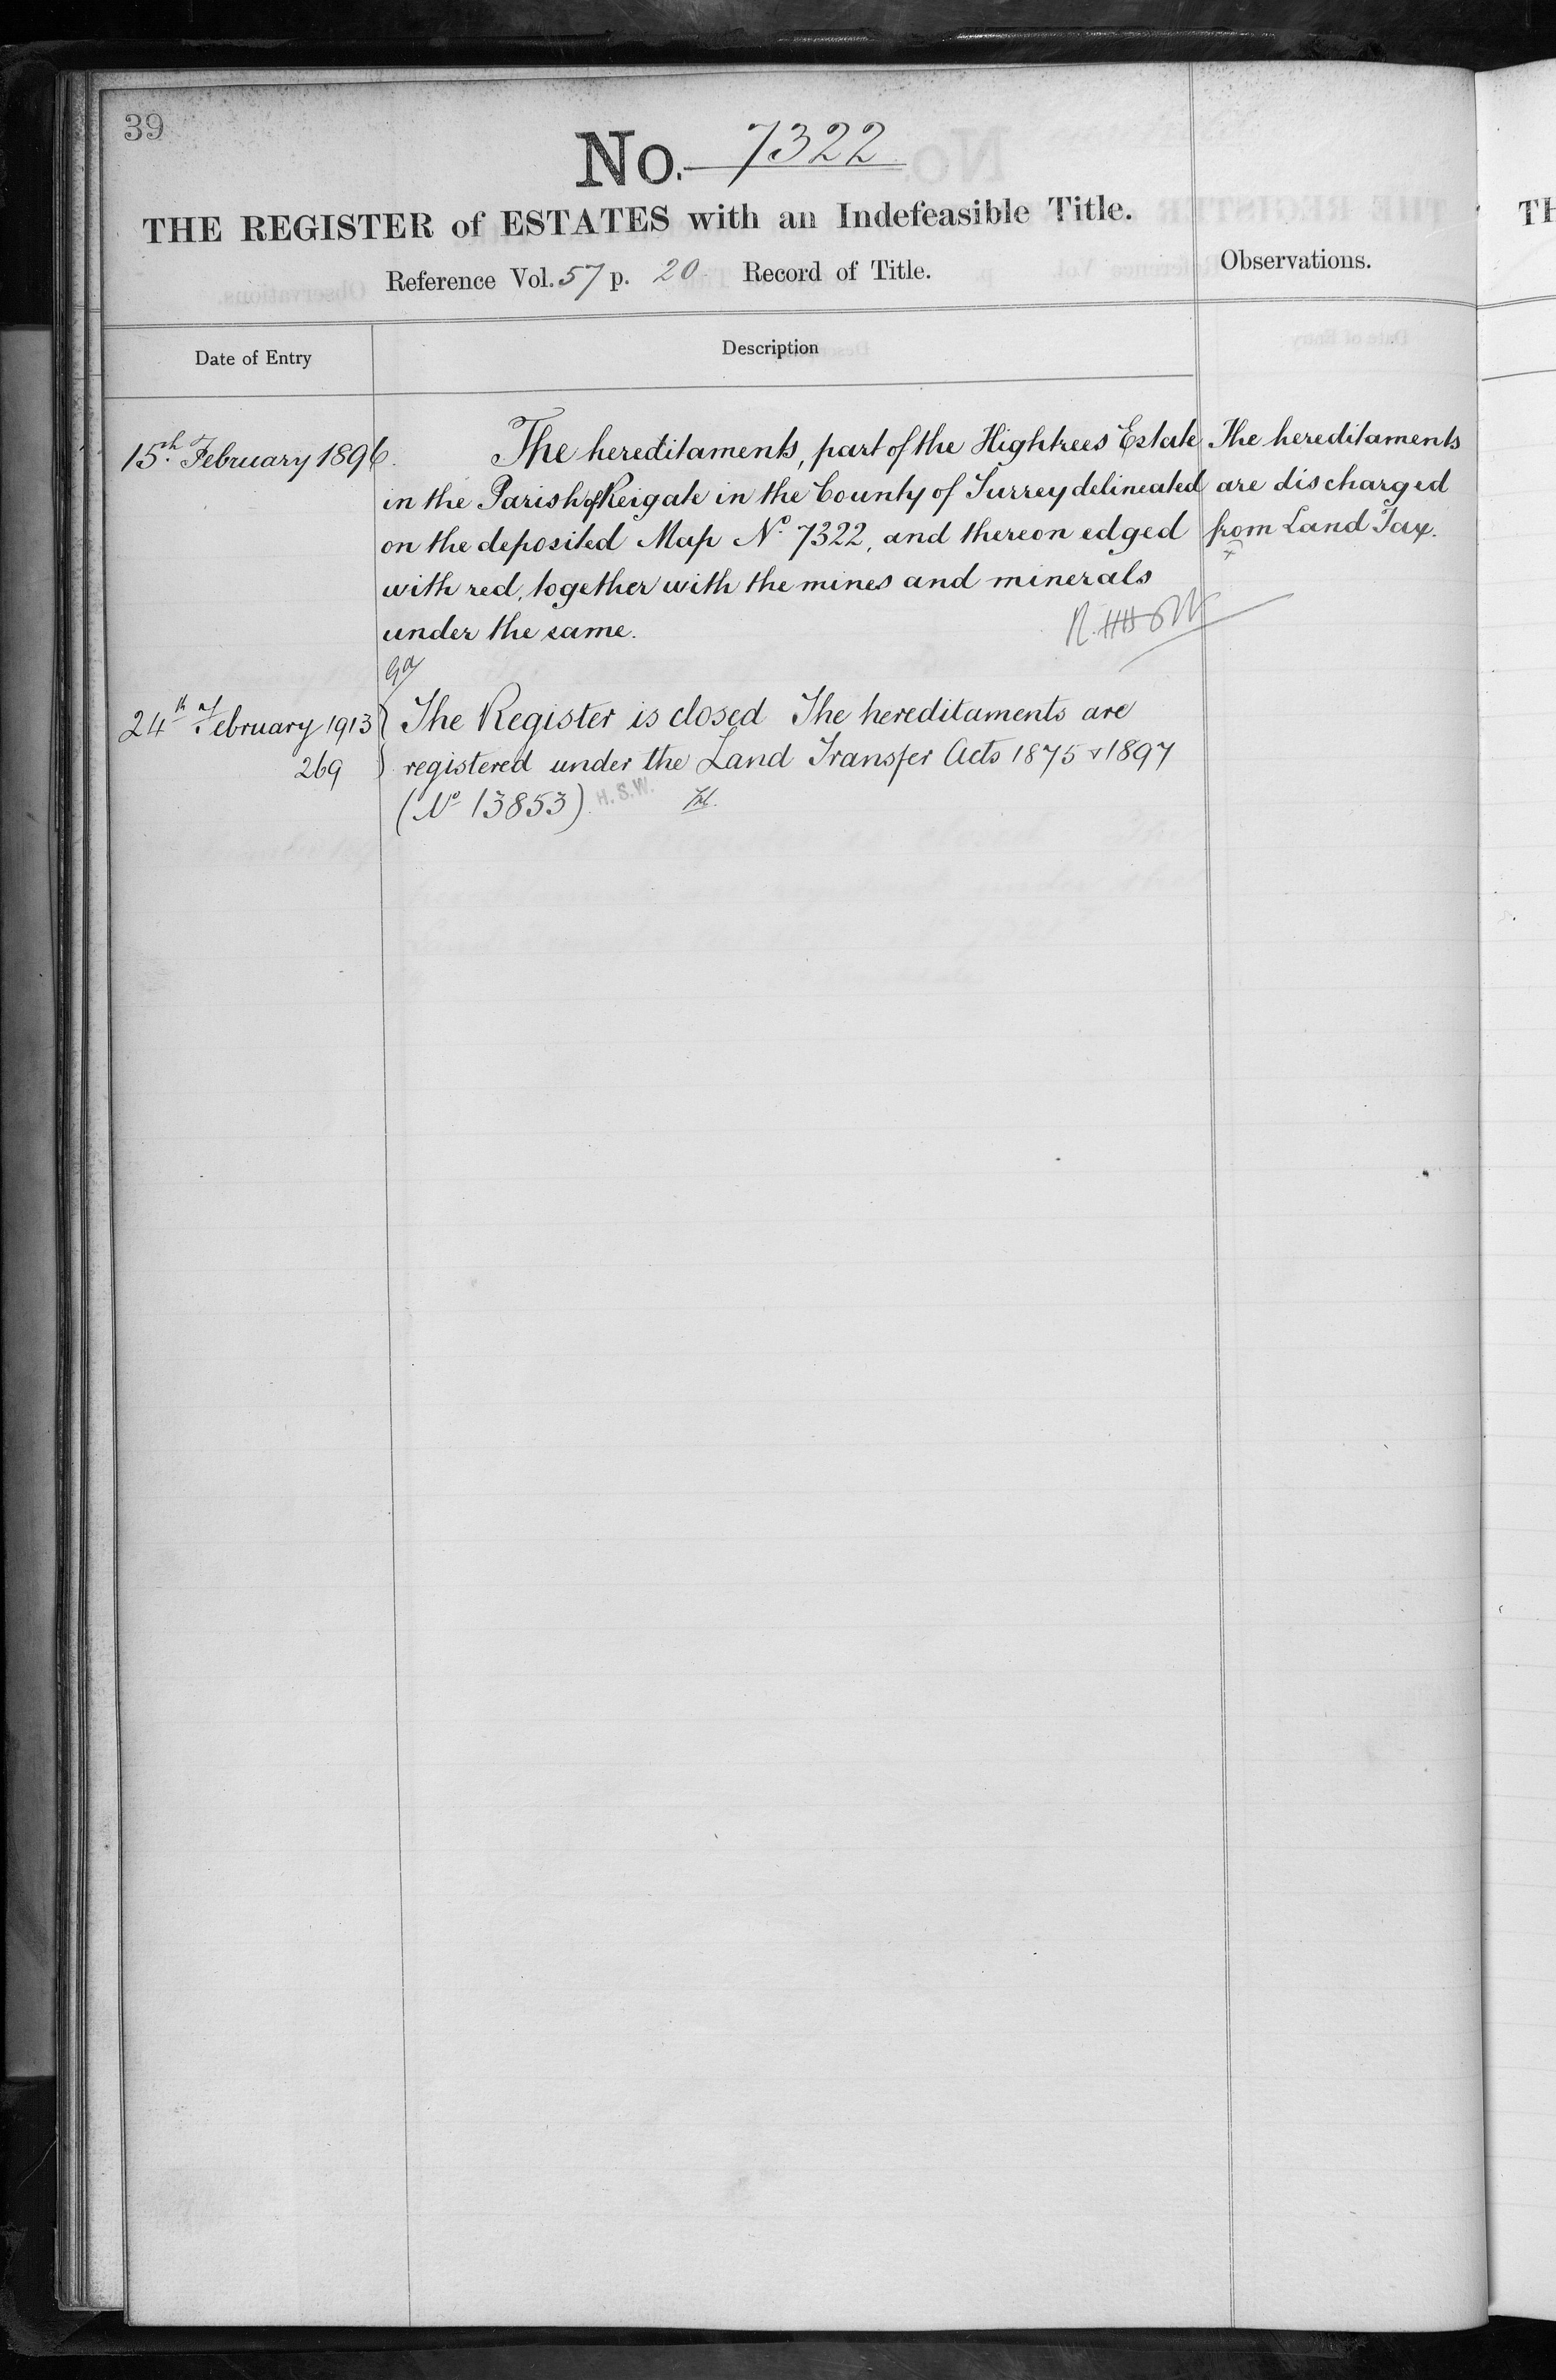 39
No. 7322
THE REGISTER of ESTATES with an Indefeasible Title.
Reference Vol. 57 p. 20 Record of Title.
Observations.
Date of Entry
Description
15th February 1896.
The hereditaments, part of the Hightrees Estate
in the Parish of Reigate in the County of Surrey delineated
on the deposited Map No. 7322, and thereon edged
with red, together with the mines and minerals
under the same.
The hereditaments
are discharged
from Land Tax.
24th February 1913
269
The Register is closed The hereditaments are
registered under the Land Transfer Acts 1875 & 1897
(No 13853).
H.S.W.
TH